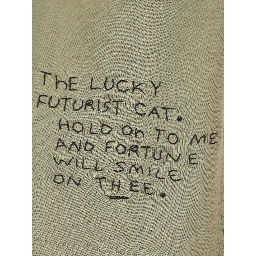 THE LUCKY
FUTURIST CAT.
HOLD ON TO ME
AND FORTUNE
WILL SMILE
ON THEE.